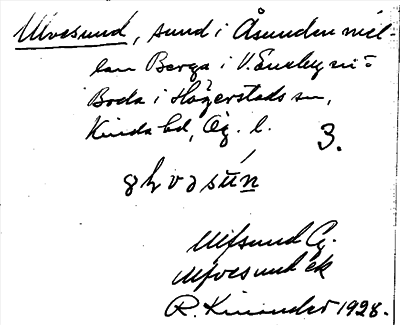 Ulvesund, sund i Åsunden mel-
lan Berga i V. Eneby o
Boda i Hägerstads sn,
Kinda hd, Ög. l.
3.
Ulfsund Cg.
Ulfvesund ek
R. 1928.